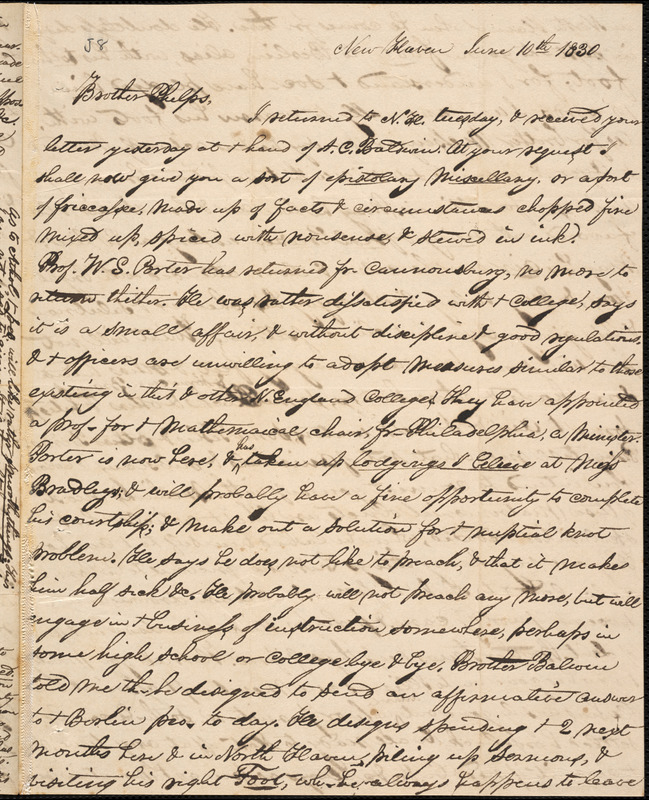 58
New Haven June 10th 1830
Brother Phelps,
I returned to N. H. tuesday, & received your
letter yesterday at + hand of A. C. Baldwin. At your request I
shall now give you a sort of epistolary Miscellany, or a sort
of friccassee, made up of facts & circumstances chopped fine
mixed up, spiced with nonsense, & stewed in ink.
Prof. W. S. Porter has returned fr. Cannonsburg, no more to
return thither. He was rather dissatisfied with + College, says
it is a small affair, & without discipline & good regulations.
& + officers are unwilling to adopt measures similar to those
existing in this & other N. England Colleges. They have appointed
a prof. for + Mathemaical chair, fr. Philadelphia, a Minister.
Porter is now here, & has taken up lodgings I believe at Miss
Bradleys, & will probably have a fine opportunity to complete
his courtship, & make out a solution for + nuptial knot
problem. He says he does not like to preach, & that it makes
him half sick &c. He probably will not preach any more, but will
engage in + business of instruction somewhere, perhaps in
some high school or College bye & bye. Brother Baldwin
told me th. he designed to send an affirmative answer
to + Berlin peo. to day. He designs spending + 2 next
months here & in North Haven, piling up sermons, &
visiting his right Foot, wh. he always happens to leave